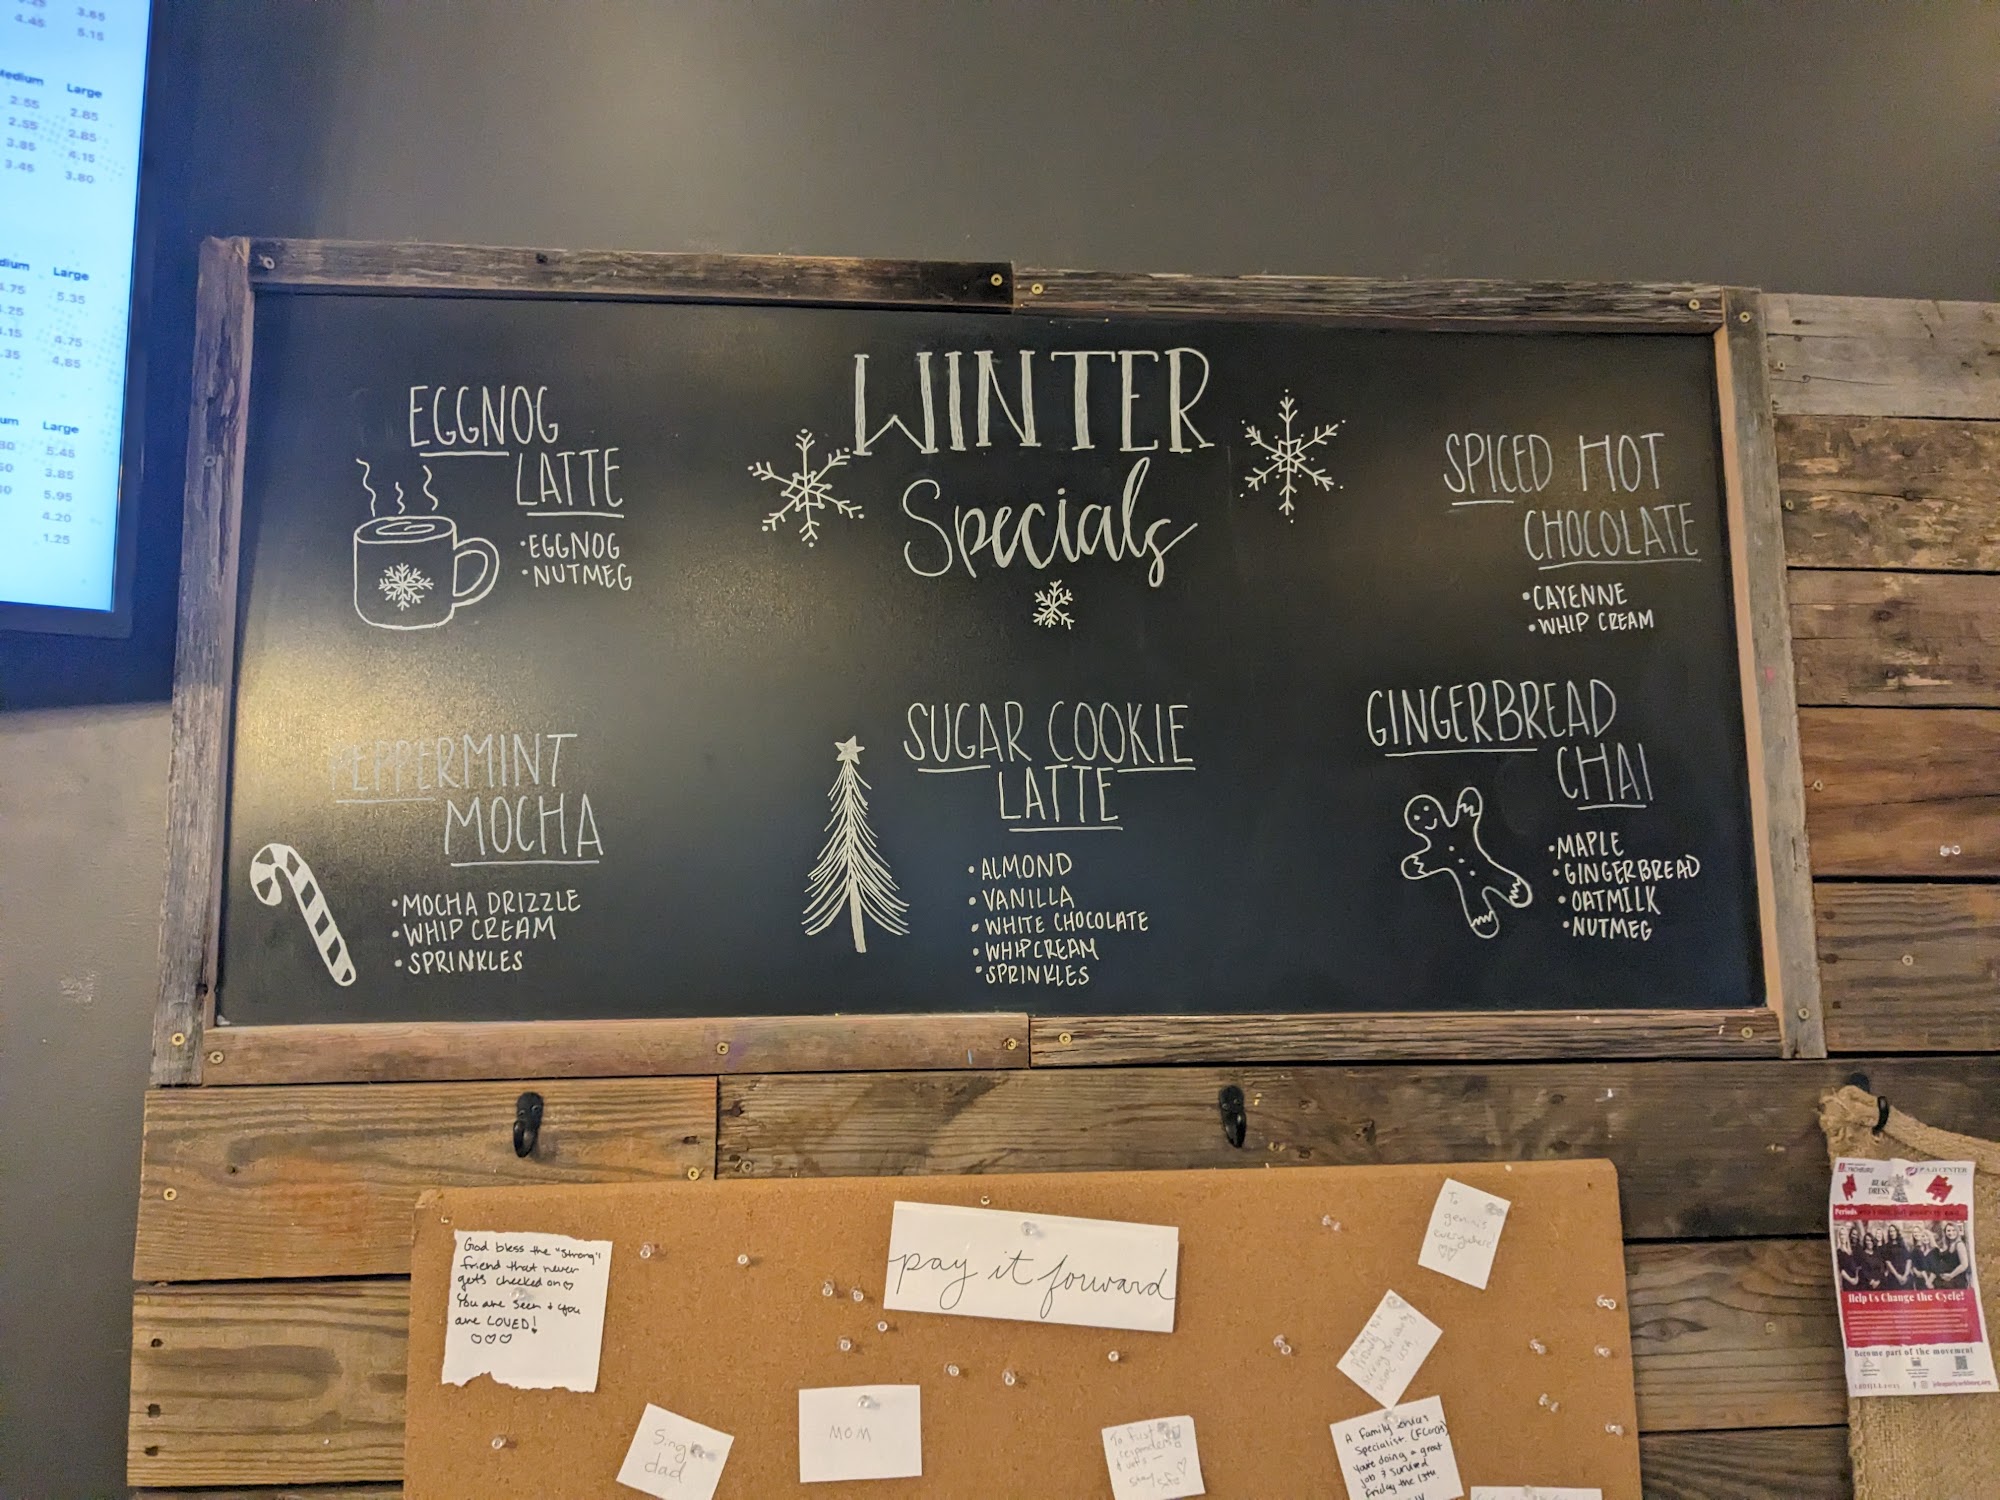 3.65
4.45 5.15
Medium Large
2.55 2.85
2.55 2.85
3.85 4.15
3.45 3.80
Large
5.35
4.75
4.85
Large
5.45
3.85
5.95
4.20
1.25
WINTER
Specials
EGGNOG
LATTE
•EGGNOG
•NUTMEG
SPICED HOT
CHOCOLATE
•CAYENNE
•WHIP CREAM
PEPPERMINT
MOCHA
•MOCHA DRIZZLE
•WHIP CREAM
•SPRINKLES
SUGAR COOKIE
LATTE
•ALMOND
•VANILLA
•WHITE CHOCOLATE
•WHIPCREAM
•SPRINKLES
GINGERBREAD
CHAI
•MAPLE
•GINGERBREAD
•OATMILK
•NUTMEG
God bless the "strong"
friend that never
gets checked on♡
You are seen + you
are LOVED!
♡♡♡
pay it forward
To
everywhere
♡♡
Sing
dad
MOM
To first
responders
A Family Services
Specialist
you're doing a great
job & survived
Friday the 13th
CENTER
BLACK
DRESS
Periods
Help Us Change the Cycle!
Become part of the movement